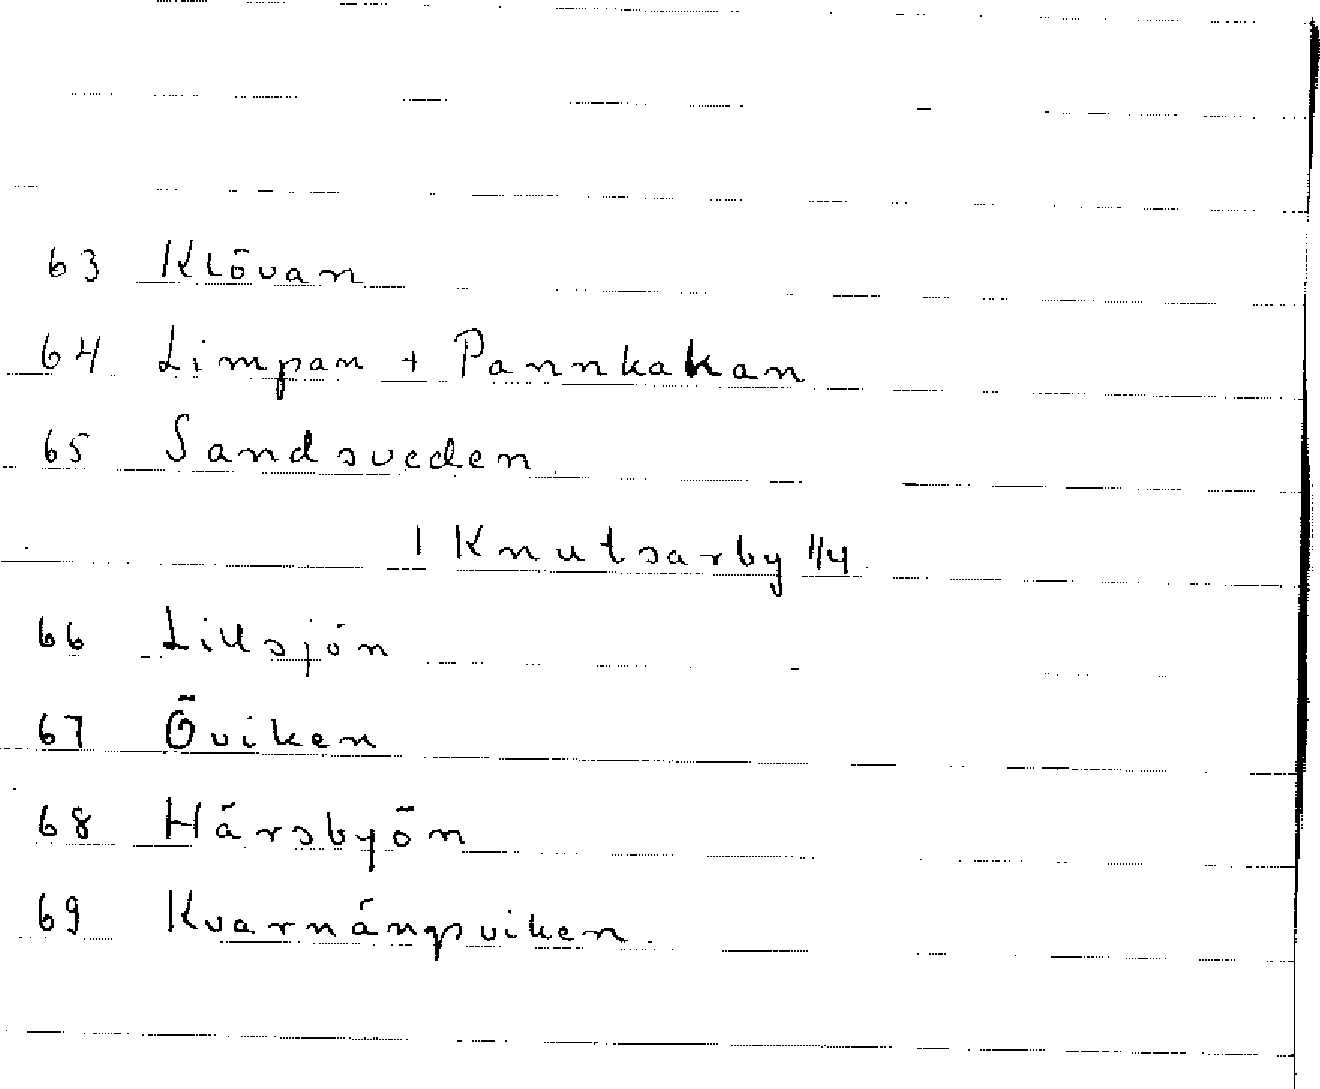 63 Klövan
64 Limpan + Pannkakan
65 Sandsveden
1 Knutsarby 1/4
66 Lillsjön
67 Öviken
68 Härsbyön
69 Kvarnängsviken.